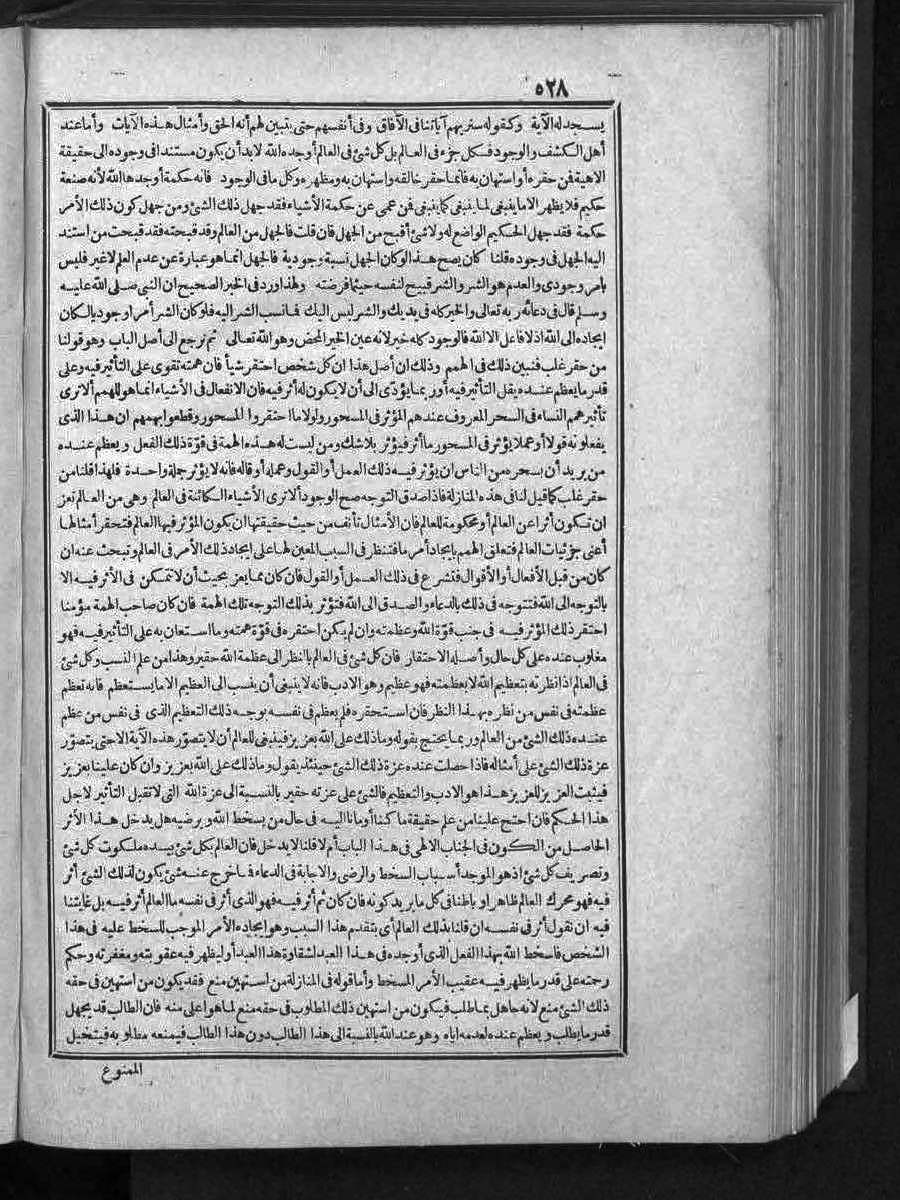 ٥٢٨
يسجد له الآية وكقوله سنريهم آياتنا في الآفاق وفي أنفسهم حتى يتبين لهم أنه الحق وأمثال هذه الآيات وأما عند
أهل الكشف والوجود فكل جزء في العالم بل كل شئ في العالم أوجده الله لا بد أن يكون مستندا في وجوده الى حقيقة
الاهية فمن حقره أو استهان به فانما حقر خالقه واستهان به ومظهره وكل ما في الوجود فانه حكمة أوجدها الله لأنه صنعة
حكيم فلا يظهر الا ما ينبغي لما ينبغي كما ينبغي فمن عمى عن حكمة الأشياء فقد جهل ذلك الشئ ومن جهل كون ذلك الأمر
حكمة فقد جهل الحكيم الواضع له ولا شئ أقبح من الجهل فان قلت فالجهل من العالم وقد قبحته فقد قبحت من استند
اليه الجهل في وجوده قلنا كان يصح هذا لو كان الجهل نسبة وجودية فالجهل انما هو عبارة عن عدم العلم لا غير فليس
بأمر وجودي والعدم هو الشر والشر قبيح لنفسه حيثما فرضته ولهذا ورد في الخبر الصحيح ان النبي صلى الله عليه
وسلم قال في دعائه ربه تعالى والخير كله في يديك والشر ليس اليك فما نسب الشر اليه فلو كان الشر أمرا وجوديا لكان
ايجاده الى الله اذ لا فاعل الا الله فالوجود كله خير لانه عين الخير المحض وهو الله تعالى ثم نرجع الى أصل الباب وهو قولنا
من حقر غلب فنبين ذلك في الهمم وذلك ان أصل هذا ان كل شخص احتقر شيأ فان همته تقوى على التأثير فيه وعلى
قدر ما يعظم عنده يقل التأثير فيه أو ربما يؤدّى الى أن لا يكون له أثر فيه فان الانفعال في الأشياء انما هو للهمم ألا ترى
تأثير همم النساء في السحر المعروف عندهم المؤثر في المسحور ولولا ما احتقروا المسحور وقطعوا بهممهم ان هذا الذي
يفعلونه قولا أو عملا يؤثر في المسحور ما أثر فيؤثر بلا شك ومن ليست له هذه الهمة في قوّة ذلك الفعل ويعظم عنده
من يريد أن يسحره من الناس ان يؤثر فيه ذلك العمل أو القول وعمله أو قاله فانه لا يؤثر جملة واحدة فلهذا قلنا من
حقر غلب كما قيل لنا في هذه المنازلة فاذا صدق التوجه صح الوجود ألا ترى الأشياء الكائنة في العالم وهي من العالم تعز
ان تكون أثرا عن العالم أو محكومة للعالم فان الأمثال تأنف من حيث حقيقتها ان يكون المؤثر فيها العالم فتحقر أمثالها
أعني جزئيات العالم فتعلق الهمم بايجاد أمر ما فتنظر في السبب المعين لها على ايجاد ذلك الأمر في العالم وتبحث عنه ان
كان من قبيل الأفعال أو الأقوال فتشرع في ذلك العمل أو القول فان كان مما يعز بحيث أن لا تتمكن في الأثر فيه الا
بالتوجه الى الله فتتوجه في ذلك بالدعاء والصدق الى الله فتؤثر بذلك التوجه تلك الهمة فان كان صاحب الهمة مؤمنا
احتقر ذلك المؤثر فيه في جنب قوّة الله وعظمته وان لم يكن احتقره في قوّة همته وما استعان به على التأثير فيه فهو
مغلوب عنده على كل حال وأصله الاحتقار فان كل شئ في العالم بالنظر الى عظمة الله حقير وهذا من علم النسب وكل شئ
في العالم اذا نظرته بتعظيم الله لا بعظمته فهو عظيم وهو الادب فانه لا ينبغي أن ينسب الى العظيم الا ما يستعظم فانه تعظم
عظمته في نفس من نظره بهذا النظر فان استحقره فلم يعظم في نفسه بوجه ذلك التعظيم الذي في نفس من عظم
عنده ذلك الشئ من العالم وربما يحتج بقوله وما ذلك على الله بعزيز فينبغي للعالم أن لا يتصوّر هذه الآية الا حتى يتصوّر
عزة ذلك الشئ على أمثاله فاذا حصلت عنده عزة ذلك الشئ حينئذ يقول وما ذلك على الله بعزيز وان كان علينا بعزيز
فيثبت العزيز للعزيز هذا هو الادب والتعظيم فالشئ على عزته حقير بالنسبة الى عزة الله التي لا تقبل التأثير لاجل
هذا الحكم فان احتج علينا من علم حقيقة ما كنا أومأنا اليه في حال من يسخط الله ويرضيه هل يدخل هذا الأثر
الحاصل من الكون في الجناب الالهي في هذا الباب أم لا قلنا لا يدخل فان العالم بكل شئ بيده ملكوت كل شئ
وتصريف كل شئ اذ هو الموجد أسباب السخط والرضى والاجابة في الدعاء فما خرج عنه شئ يكون لذلك الشئ أثر
فيه فهو محرك العالم ظاهرا وباطنا في كل ما يريد كونه فان كان ثم أثر فيه فهو الذي أثر في نفسه ما العالم أثر فيه بل غايتنا
فيه ان نقول أثر في نفسه ان قلنا بذلك العالم أي بتقدم هذا السبب وهو ايجاده الأمر الموجب للسخط عليه في هذا
الشخص فأسخط الله بهذا الفعل الذي أوجده في هذا العبد لشقاوة هذا العبد أو ليظهر فيه عقوبته ومغفرته وحكم
رحمته على قدر ما يظهر فيه عقيب الأمر المسخط وأما قوله في المنازلة من استهين منع فقد يكون من استهين في حقه
ذلك الشئ منع لانه جاهل بما طلب فيكون من استهين ذلك المطلوب في حقه منع لما هو أعلى منه فان الطالب قد يجهل
قدر ما يطلب ويعظم عنده لعدمه اياه وهو عند الله بالنسبة الى هذا الطالب دون هذا الطالب فيمنعه مطلوبه فيتخيل
الممنوع